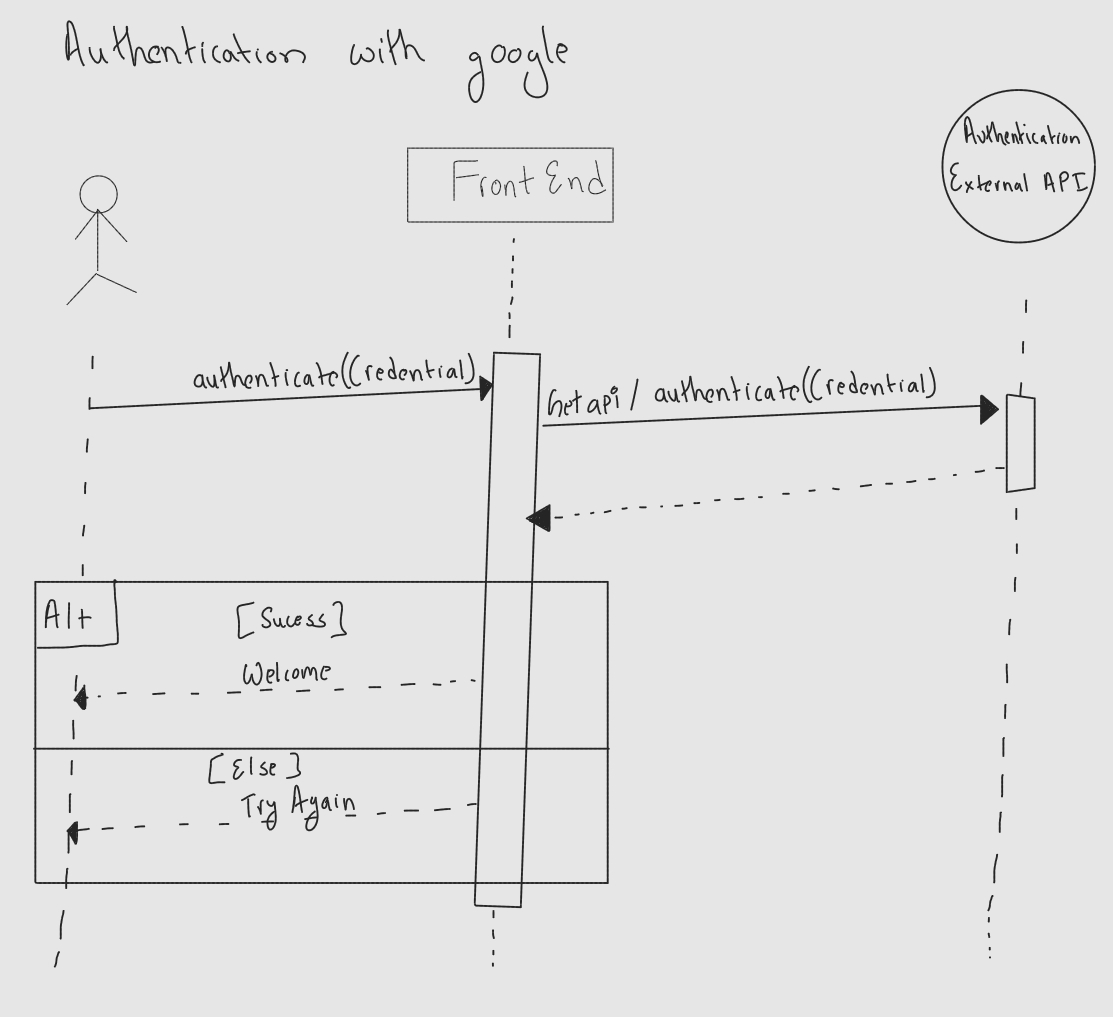 Authentication with google
Front End
Authentication
External API
authenticate((redential)
Get api / authenticate((redential)
Alt
[Sucess]
Welcome
[Else]
Try Again